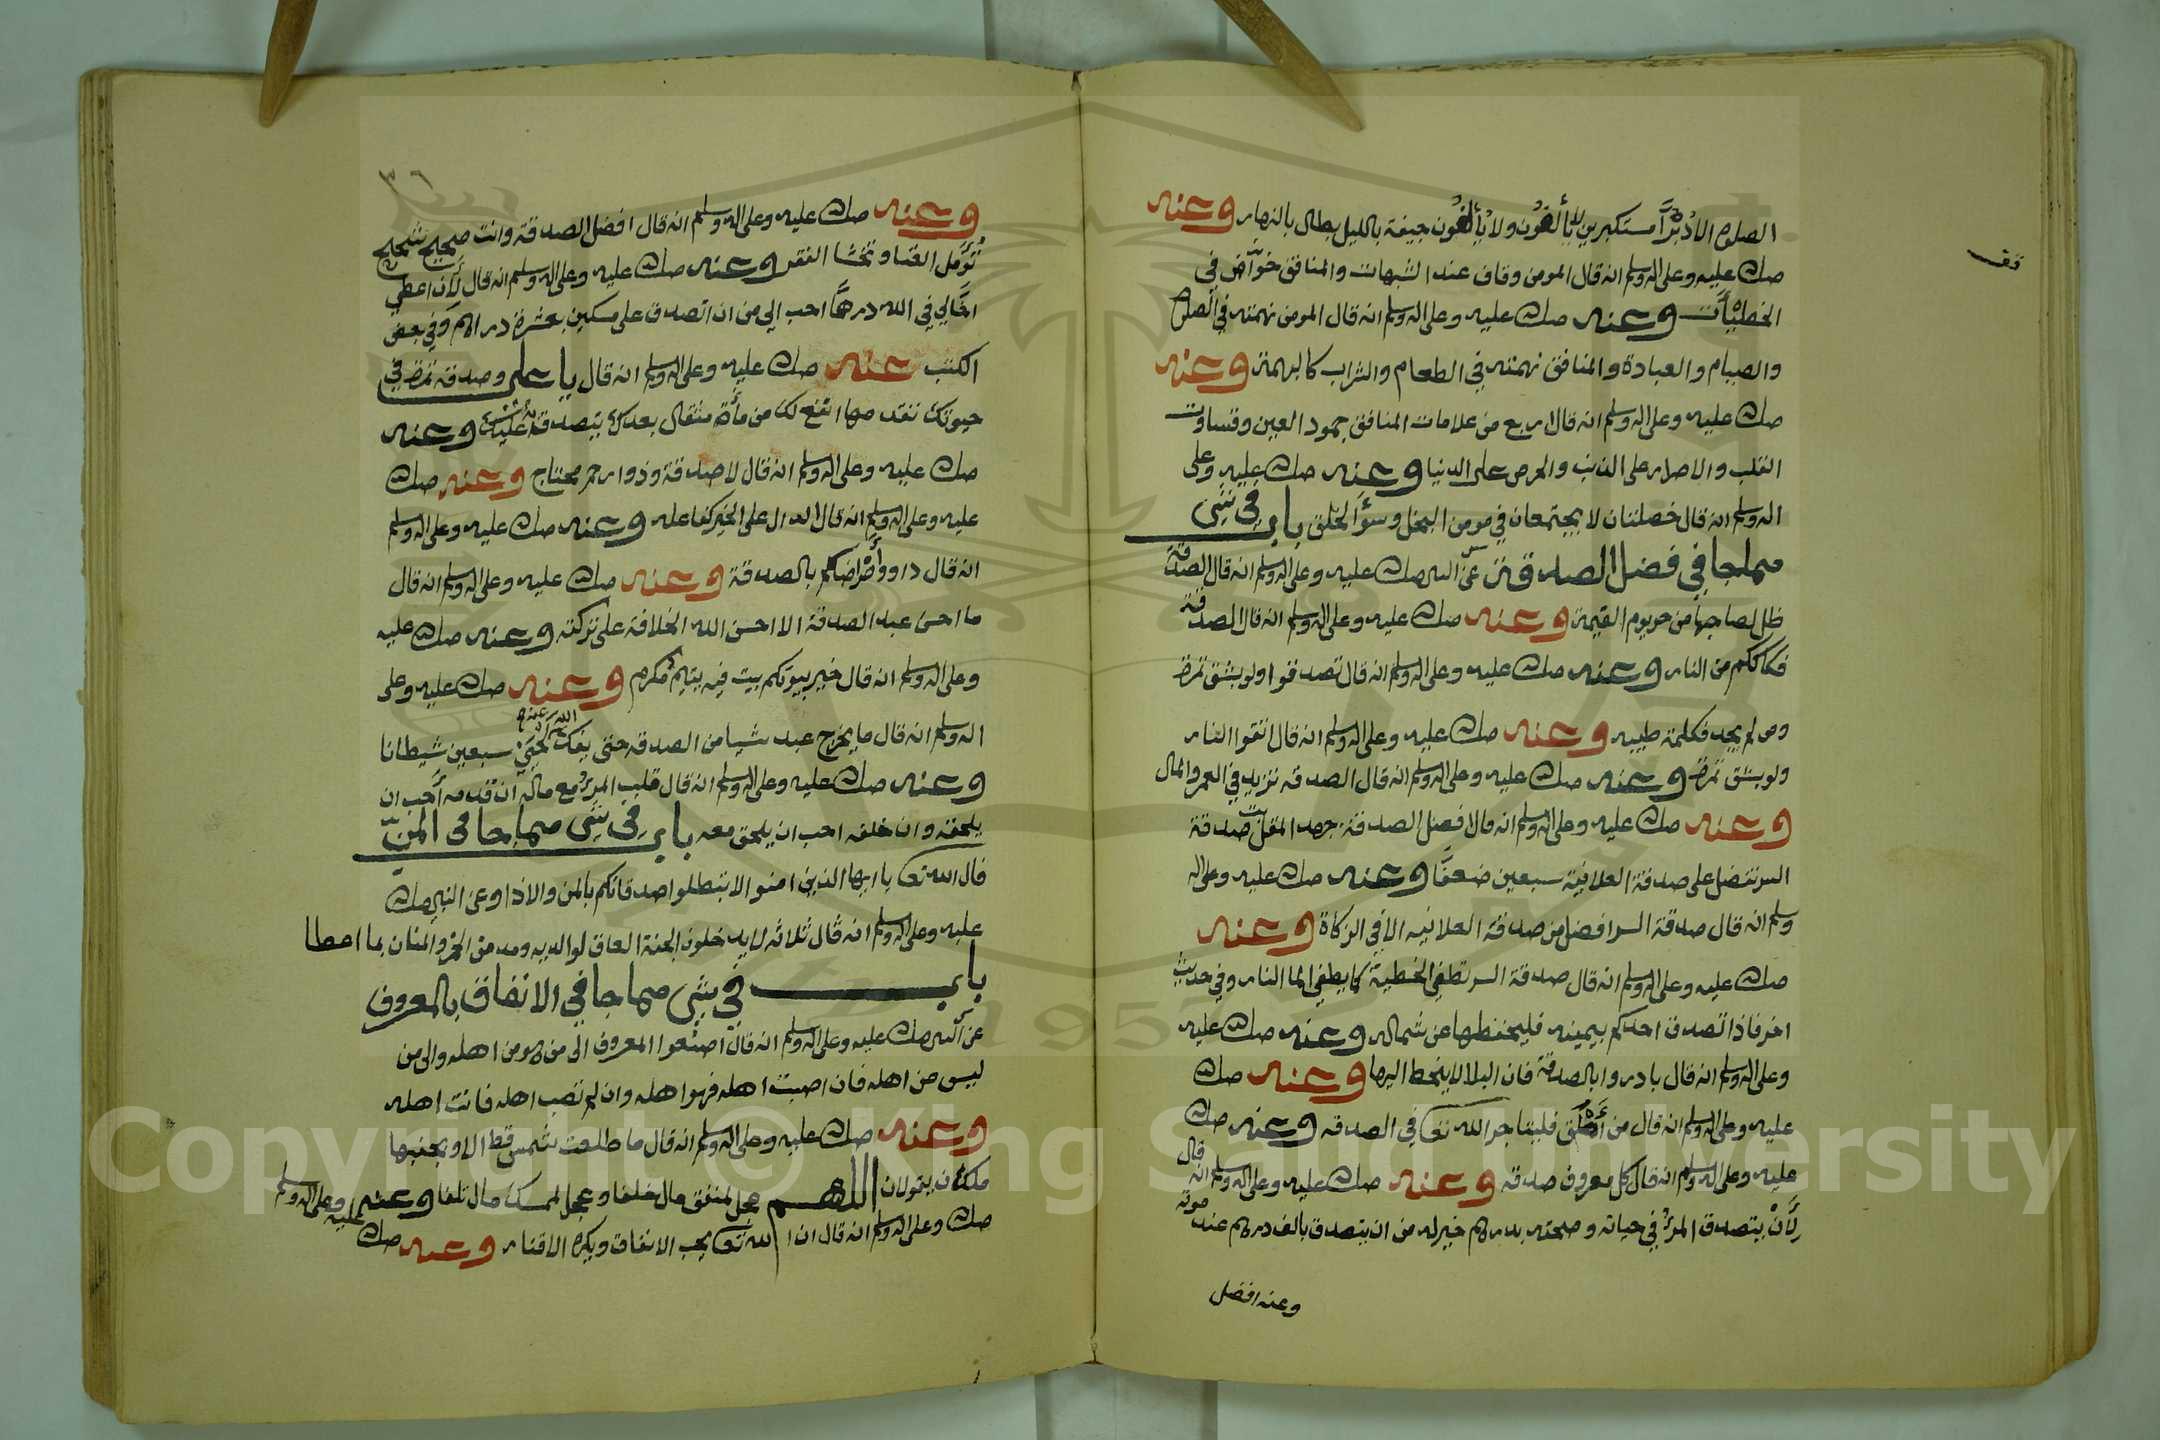 الصلوة الا دبرا مستكبرين لا يألفون ولا يألفون جيفة بالليل بطال بالنهار وعنه
صلى الله عليه وعلى اله وسلم انه قال المومن وقاف عند الشبهات والمنافق خواض في
قف
الخطيات وعنه صلى الله عليه وعلى اله وسلم انه قال المومن نهمته في الصلوة
والصيام والعبادة والمنافق نهمته في الطعام والشراب كالبهمة وعنه
صلى الله عليه وعلى اله وسلم انه قال اربع من علامات المنافق جمود العين وقساوت
القلب والاصرار على الذنب والحرص على الدنيا وعنه صلى الله عليه وعلى
اله وسلم انه قال خصلتان لا يجتمعان في مومن البخل وسؤ الخلق باب في شي
مما جا في فضل الصدقة عن النبي صلى الله عليه وعلى اله وسلم انه قال الصدقة
ظل لصاحبها من حر يوم القيمة وعنه صلى الله عليه وعلى اله وسلم انه قال الصدقة
فكاككم من النار وعنه صلى الله عليه وعلى اله وسلم انه قال تصدقوا ولو بشق تمرة
ومن لم يجد فكلمة طيبه وعنه صلى الله عليه وعلى اله وسلم انه قال اتقوا النار
ولو بشق تمرة وعنه صلى الله عليه وعلى اله وسلم انه قال الصدقه تزيد في العمر والمال
وعنه صلى الله عليه وعلى اله وسلم انه قال افضل الصدقة جهد المقل صدقة
السر تفضل على صدقة العلانية سبعين ضعفا وعنه صلى الله عليه وعلى اله
وسلم انه قال صدقة السر افضل من صدقة العلانيه الا في الزكاة وعنه
صلى الله عليه وعلى اله وسلم انه قال صدقة السر تطفي الخطية كما يطفي الما النار وفي حديث
اخر فاذا تصدق احدكم بيمينه فليخفها عن شماله وعنه صلى الله عليه
وعلى اله وسلم انه قال بادروا بالصدقة فان البلا لا يتخطا اليها وعنه صلى الله
عليه وعلى اله وسلم انه قال من أملق فليتاجر الله تعالى في الصدقه وعنه صلى الله
عليه وعلى اله وسلم انه قال كل معروف صدقه وعنه صلى الله عليه وعلى اله وسلم انه قال
لأن يتصدق المرؤ في حياته وصحته بدرهم خير له من ان يتصدق بالف درهم عند موته
وعنه افضل
٣٦
وعنه صلى الله عليه وعلى اله وسلم انه قال افضل الصدقة وانت صحيح شحيح
تؤمل الغنا وتخشا الفقر وعنه صلى الله عليه وعلى اله وسلم انه قال لأن اعطي
اخا لي في الله درهما احب الي من ان اتصدق على مسكين بعشرة دراهم وفي بعض
الكتب عنه صلى الله عليه وعلى اله وسلم انه قال يا علي وصدقه تمرة في
حيوتك تقدمها انفع لك من مأة مثقال بعدك يتصدق عليك وعنه
صلى الله عليه وعلى اله وسلم انه قال لا صدقة وذوا رحم محتاج وعنه صلى الله
عليه وعلى اله وسلم انه قال الدال على الخير كفاعله وعنه صلى الله عليه وعلى اله وسلم
انه قال داووا مراضكم بالصدقة وعنه صلى الله عليه وعلى اله وسلم انه قال
ما احسن عبد الصدقة الا احسن الله الخلافة على تركته وعنه صلى الله عليه
وعلى اله وسلم انه قال خير بيوتكم بيت فيه يتيم مكرم وعنه صلى الله عليه وعلى
اله وسلم انه قال ما يخرج عبد شيا من الصدقه حتى يفك الله عنه لحيي سبعين شيطانا
وعنه صلى الله عليه وعلى اله وسلم انه قال قلب المرؤ مع ماله ان قدمه أحب ان
يلحقه وان خلفه احب ان يلحق معه باب في شي مما جا في المن
قال الله تعالى يا ايها الذين امنوا لا تبطلوا صدقاتكم بالمن والاذا وعن النبي صلى الله
عليه وعلى اله وسلم انه قال ثلاثه لا يدخلون الجنة العاق لوالديه ومدمن الخمر والمنان بما اعطا
باب في شي مما جا في الانفاق بالمعروف
عن النبي صلى الله عليه وعلى اله وسلم انه قال اصنعوا المعروف الى من هو من اهله والى من
ليس من اهله فان اصبت اهله فهو اهله وان لم تصب اهله فانت اهله
وعنه صلى الله عليه وعلى اله وسلم انه قال ما طلعت شمس قط الا وبجنبها
ملكان يقولان اللهم عجل لمنفق مال خلفا وعجل لممسك مال تلفا وعنه
صلى الله عليه وعلى اله وسلم انه قال ان الله تعالى يحب الانفاق ويكره الاقتار وعنه صلى الله عليه وعلى اله وسلم
Copyright © King Saud University
1957